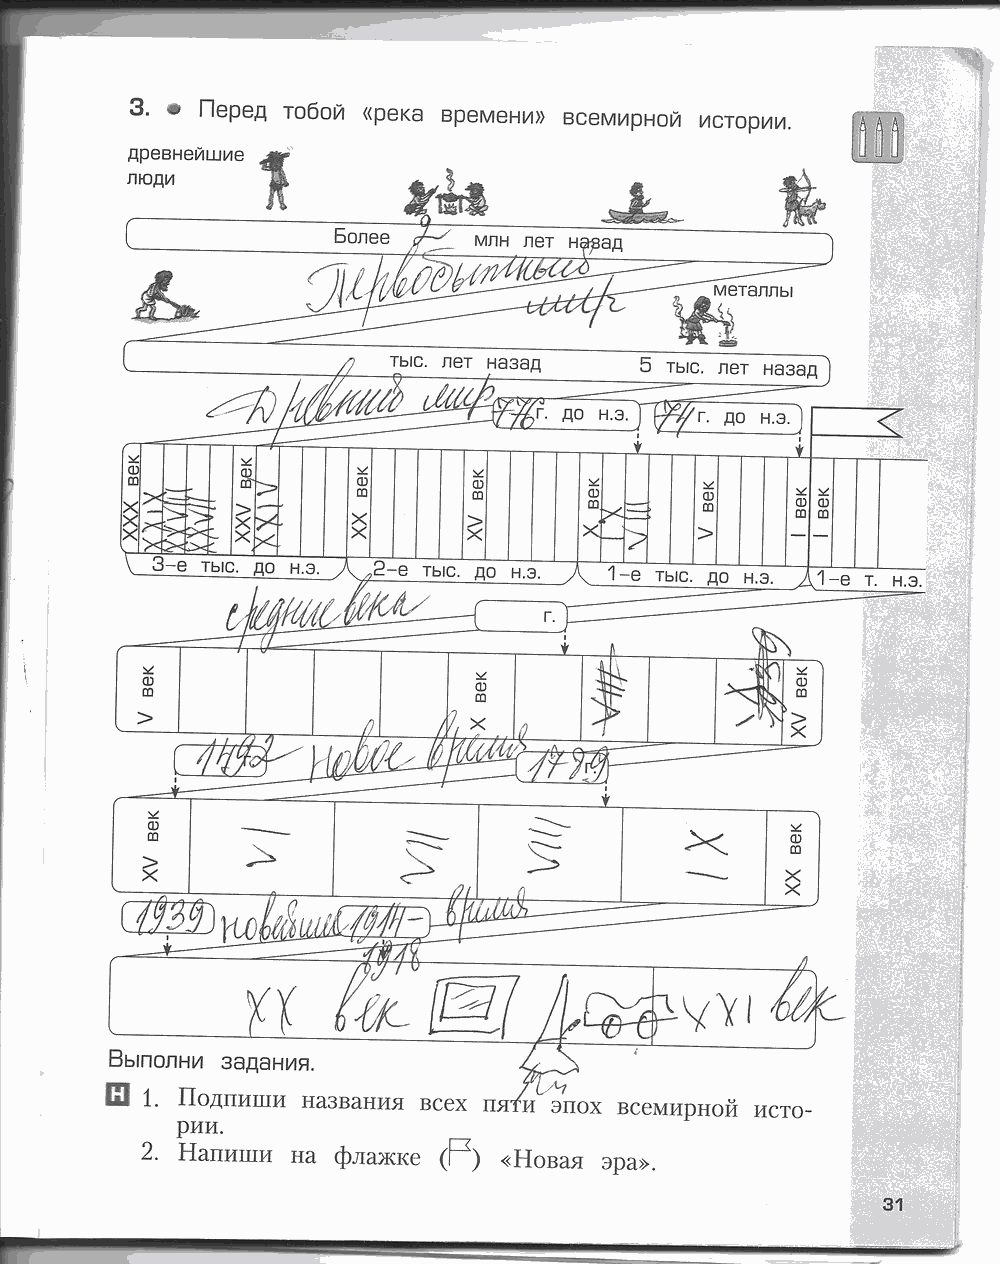 3. • Перед тобой «река времени» всемирной истории.
древнейшие
люди
Более 2 млн лет назад
Первобытный
мир
металлы
тыс. лет назад 5 тыс. лет назад
Древний мир
776 г. до н.э. 74 г. до н.э.
XXX век XXV век XXIV XX век XV век X век V век I век I век
3-е тыс. до н.э. 2-е тыс. до н.э. 1-е тыс. до н.э. 1-е т. н.э.
средние века г.
V век X век VIII XV век
1492 новое время 1789
XV век VI VII VIII IX XX век
1939 новейшее 1914- время
1918
XX век XXI век
Выполни задания.
Н 1. Подпиши названия всех пяти эпох всемирной исто-
рии.
2. Напиши на флажке ( ) «Новая эра».
31